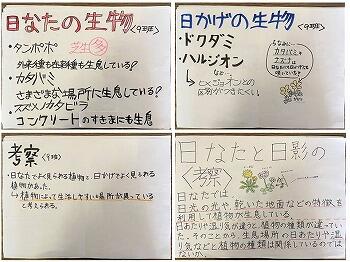 日なたの生物 <9班>
・タンポポ
外来種も在来種も生息している?
・カタバミ
さまざまな場所に生息している?
スズメノカタビラ
・コンクリートのすきまにも生息
日かげの生物 <9班>
・ドクダミ
・ハルジオン
ちなみに…
カタバミと
など…
↳ヒメジョオンとの
区別がつきにくい
考察 (9班)
・日なたでよく見られる植物と、日かげでよく見られる
植物があった。
↳植物によって生活しやすい場所が異っている
と考えられる。
日なたと日影の
<考察>
日なたでは
日光の光や、乾いた地面などの特徴を
利用して植物が生息している。
日あたりや湿り気が違うと植物の種類が違ってい
た。そのことから、生息場所の日あたりや湿
り気などと植物の種類は関係しているのでは
ないか。